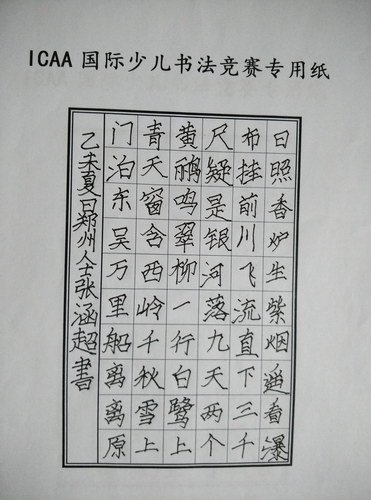 ICAA 国际少儿书法竞赛专用纸
日照香炉生紫烟遥看瀑
布挂前川飞流直下三千
尺疑是银河落九天两个
黄鹂鸣翠柳一行白鹭上
青天窗含西岭千秋雪上
门泊东吴万里船离离原
乙未夏日郑州人士张涵超書